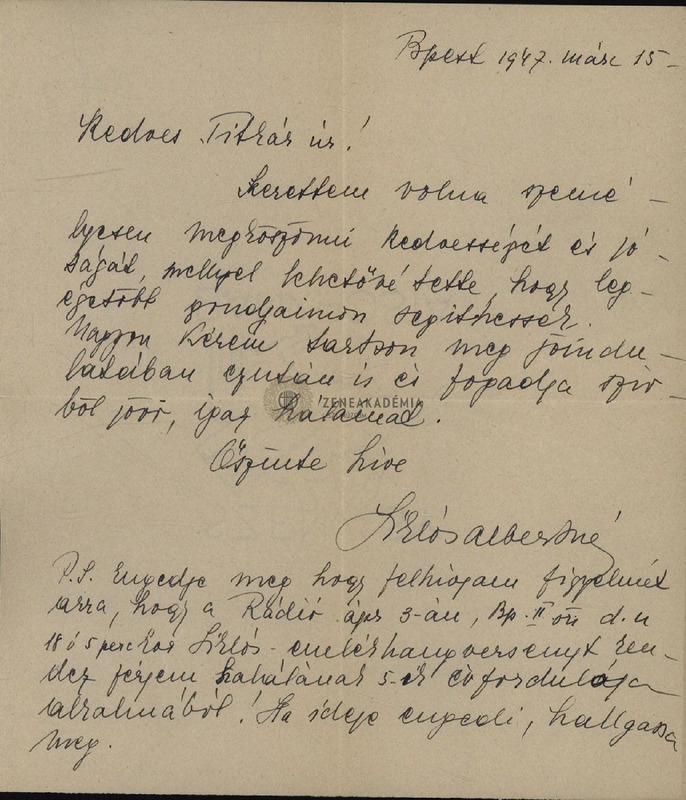 Bpest 1947. márc 15-
Kedves Titkár úr!
Szerettem volna szemé-
lyesen megköszönni kedvességét és jó-
ságát, mellyel lehetővé tette, hogy leg-
égetőbb gondjaimon segíthessek.
Nagyon kérem tartson meg jóindu-
latában ezután is és fogadja szív-
ből jövő, igaz hálámat.
ZENEAKADÉMIA
Őszinte híve
Siklós Albertné
P.S. Engedje meg hogy felhívjam figyelmét
arra, hogy a Rádió ápr 3-án, Bp. II őn d.u
18 ó 5 perckor Siklós-emlékhangversenyt ren-
dez férjem halálának 5-ik évfordulója
alkalmából! Ha ideje engedi, hallgassa
meg.